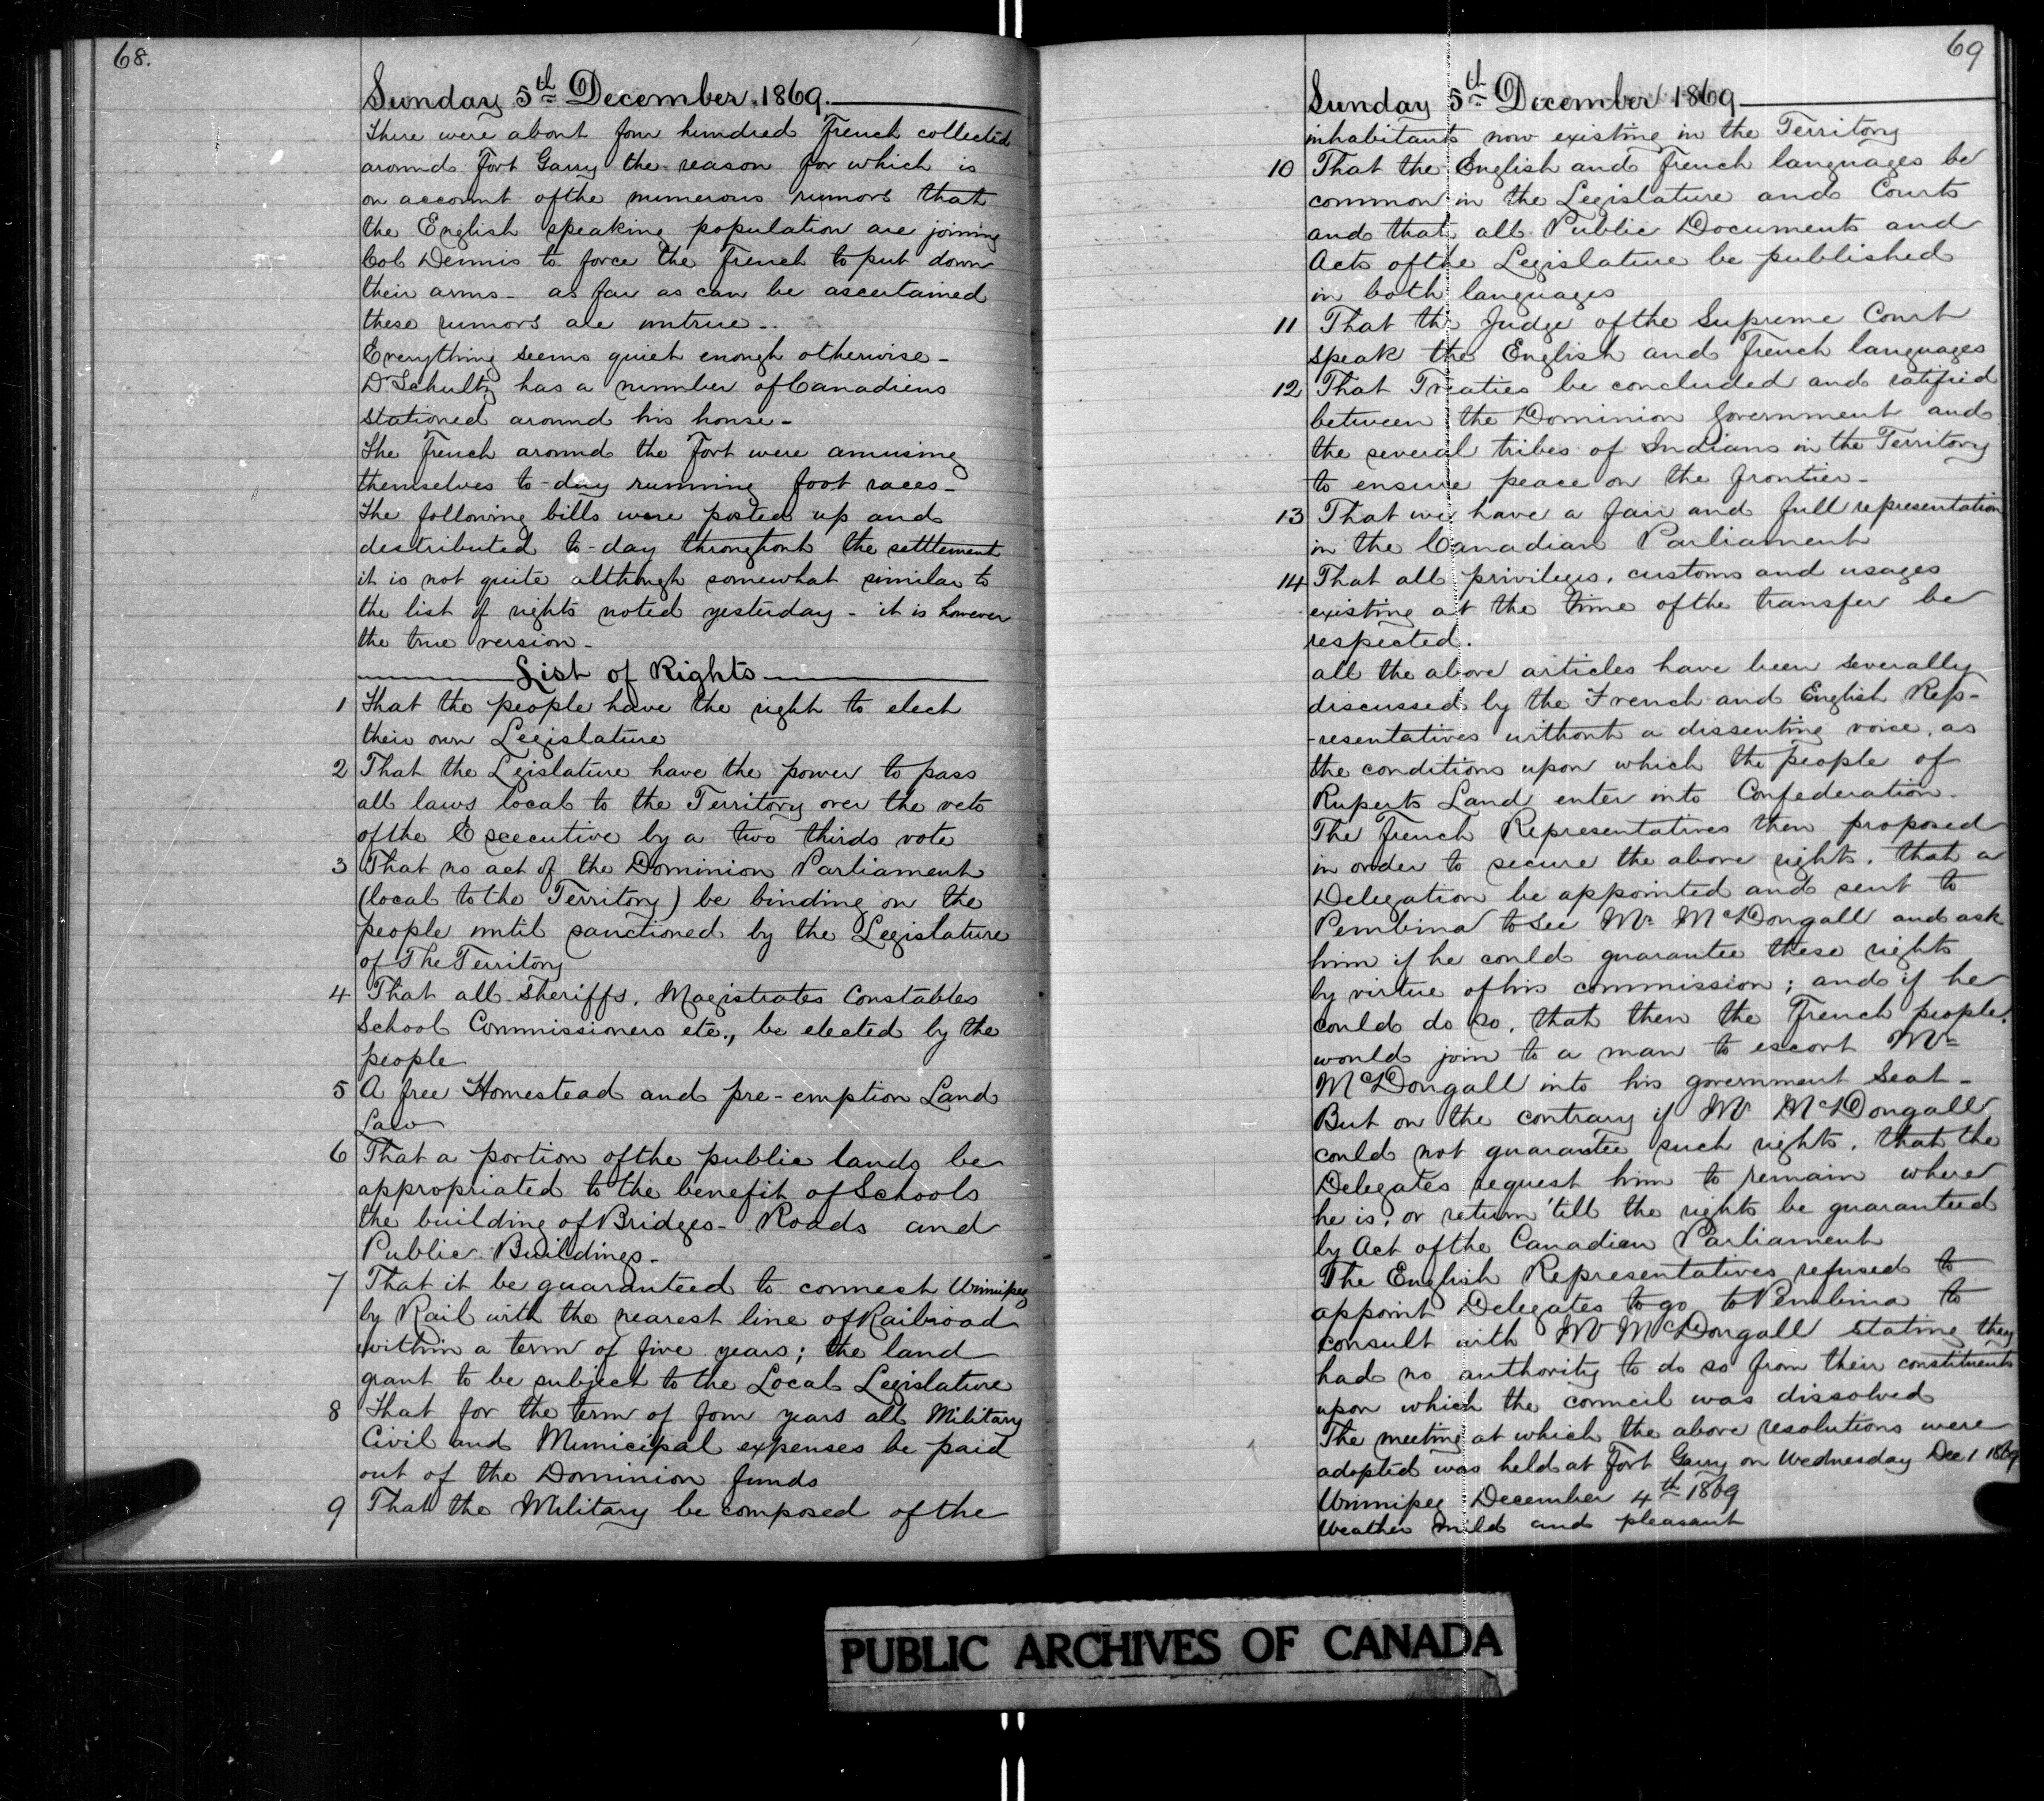 68.
Sunday 5th December 1869.
There were about four hundred French collected
around Fort Garry the reason for which is
on account of the numerous rumors that
the English speaking population are joining
Col Dennis to force the French to put down
their arms - as far as can be ascertained
these rumors are untrue -
Everything seems quiet enough otherwise -
Dr Schultz has a number of Canadians
stationed around his house -
The French around the Fort were amusing
themselves to-day running foot races -
The following bills were posted up and
destributed to-day throughout the settlement
it is not quite although somewhat similar to
the list of rights noted yesterday - it is however
the true version -
List of Rights
1 That the people have the right to elect
their own Legislature
2 That the Legislature have the power to pass
all laws local to the Territory over the veto
of the Excecutive by a two thirds vote
3 That no act of the Dominion Parliament
(local to the Territory) be binding on the
people until sanctioned by the Legislature
of The Territory
4 That all Sheriffs, Magistrates Constables
School Commissioners etc., be elected by the
people
5 A free Homestead and pre-emption Land
Law
6 That a portion of the public lands be
appropriated to the benefit of Schools
the building of Bridges - Roads and
Public Buildings -
7 That it be guaranteed to connect Winnipeg
by Rail with the nearest line of Railroad
within a term of five years; the land
grant to be subject to the Local Legislature
8 That for the term of four years all Military
Civil and Municipal expenses be paid
out of the Dominion funds
9 That the Military be composed of the
69
Sunday 5th December 1869
inhabitants now existing in the Territory
10 That the English and French languages be
common in the Legislature and Courts
and that all Public Documents and
Acts of the Legislature be published
in both languages
11 That the Judge of the Supreme Court
speak the English and French languages
12 That Treaties be concluded and ratified
between the Dominion Government and
the several tribes of Indians in the Territory
to ensure peace on the frontier -
13 That we have a fair and full representation
in the Canadian Parliament
14 That all privileges, customs and usages
existing at the time of the transfer be
respected.
all the above articles have been severally
discussed by the French and English Rep-
-resentatives without a dissenting voice, as
the conditions upon which the people of
Ruperts Land enter into Confederation.
The French Representatives then proposed
in order to secure the above rights, that a
Delegation be appointed and sent to
Pembina to see Mr McDougall and ask
him if he could guarantee these rights
by virtue of his commission; and if he
could do so, that then the French people
would join to a man to escort Mr
McDougall into his government seat -
But on the contrary if Mr McDougall
could not guarantee such rights, that the
Delegates request him to remain where
he is, or return 'till the rights be guaranteed
by Act of the Canadian Parliament
The English Representatives refused to
appoint Delegates to go to Pembina to
consult with Mr McDougall stating they
had no authority to do so from their constituents
upon which the council was dissolved
The meeting at which the above resolutions were
adopted was held at Fort Garry on Wednesday Dec 1 1869
Winnipeg December 4th 1869
Weather mild and pleasant
PUBLIC ARCHIVES OF CANADA